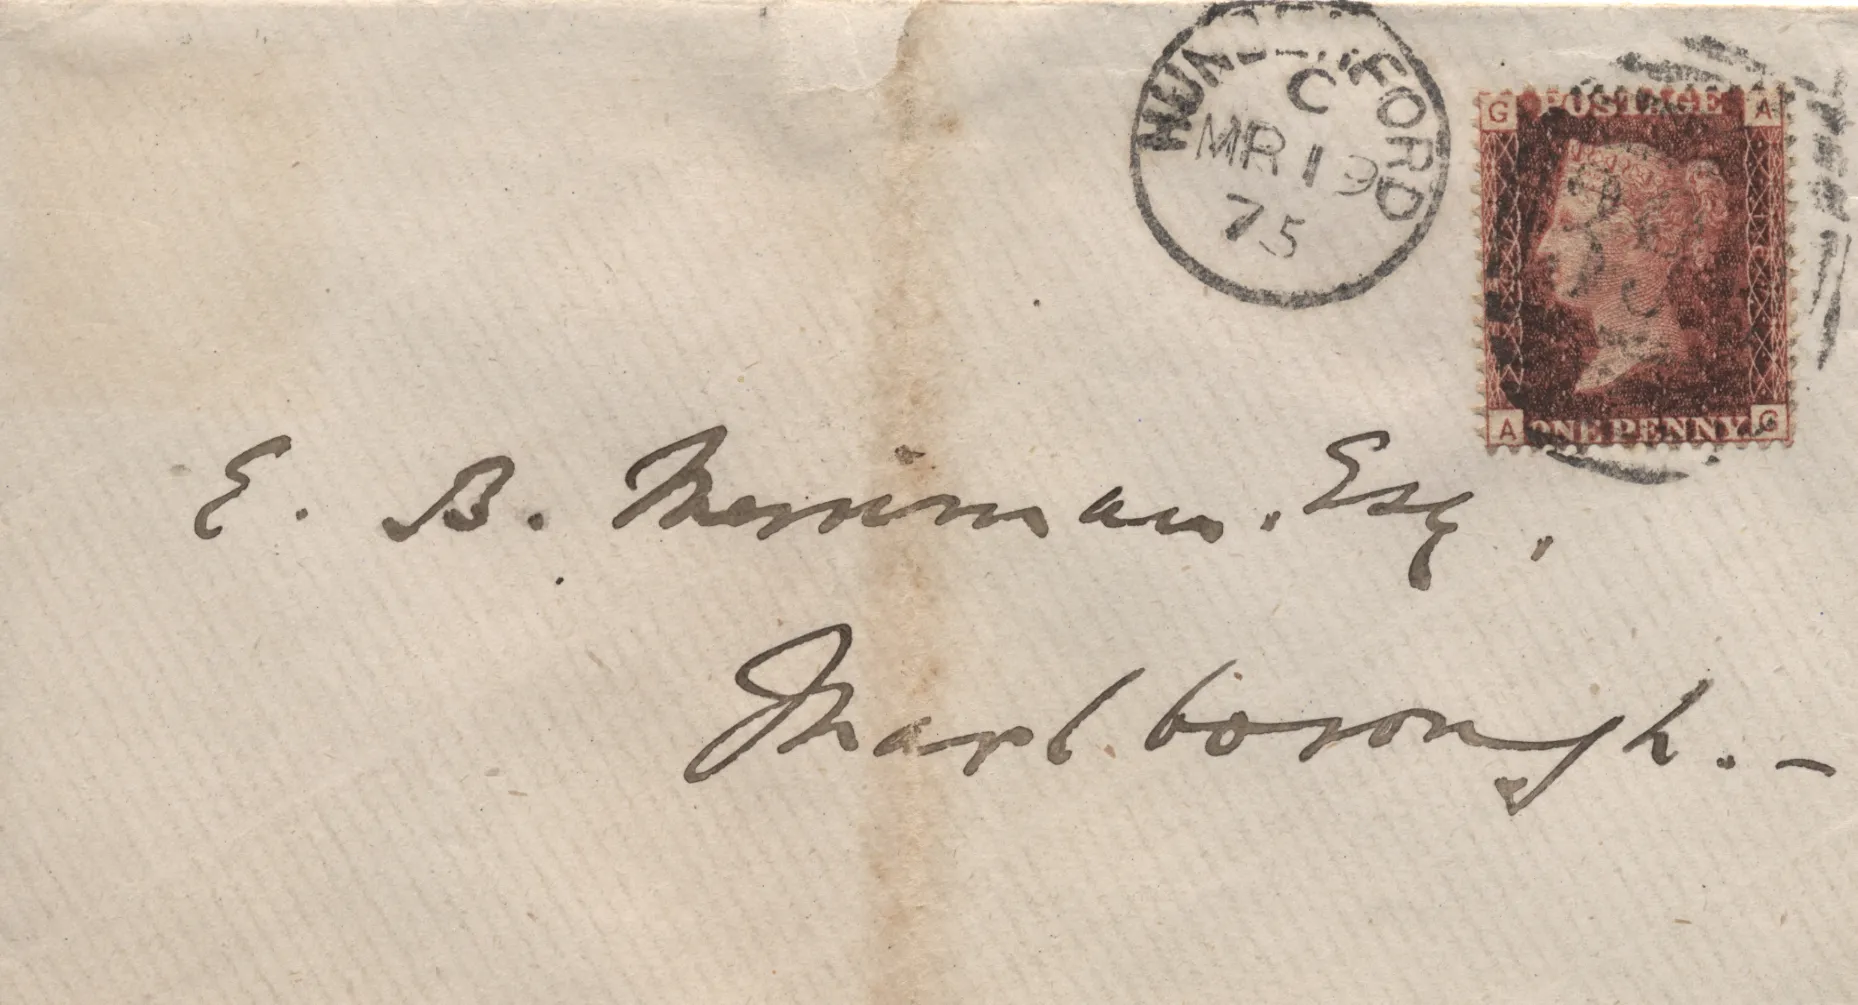 HUNGERFORD
C
MR 19
75
G POSTAGE A
A ONE PENNY G
E. B. Merriman. Esq.
Marlborough. –